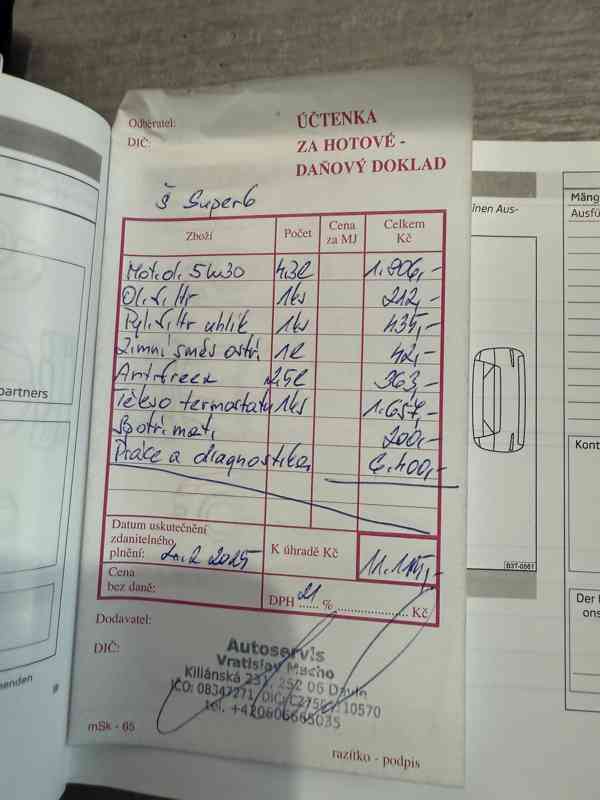 Odběratel:
DIČ:
ÚČTENKA
ZA HOTOVÉ -
DAŇOVÝ DOKLAD
Š Superb
Zboží Počet Cena za MJ Celkem Kč
Mot.ol. 5W30 4.3l 1.806,-
Ol. filtr 1ks 212,-
Pyl. filtr uhlík 1ks 435,-
Zimní směs ostř. 1l 42,-
Antifreex 2,5l 363,-
Těleso termostatu 1ks 1.657,-
Spotř. mat. 200,-
Práce a diagnostika 6.400,-
Datum uskutečnění
zdanitelného
plnění: 2025
K úhradě Kč 11.115,-
Cena
bez daně:
DPH 21 % Kč
Dodavatel:
DIČ:
Autoservis
Vratislav Macho
Kiliánská 231, 252 06 Davle
IČO: 08347271
tel. +420606665035
mSk - 65
razítko - podpis
partners
einen Aus-
Mäng
Ausfü
B3T-0561
Kont
Der
ons